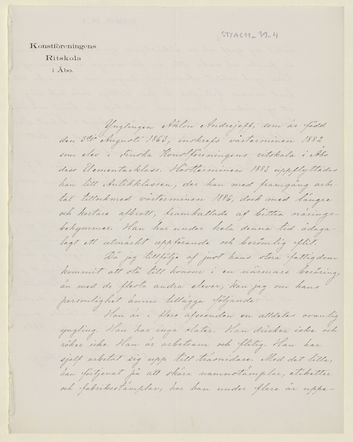 STYACH-39-4
Konstföreningens
Ritskola
i Åbo.
Ynglingen Anton Andrejeff, som är född
den Augusti 1863, inskrefs vårterminen 1882
som elev i Finska Konstföreningens ritskola i Åbo
dess Elementarklass. Höstterminen 1883 uppflyttades
han till Antikklassen, der han med framgång arbe-
tat till med vårterminen 1886, dock med längre
och kortare afbrott, framkallade af bittra närings-
bekymmer. Han har under hela denna tid ådaga-
lagt ett utmärkt uppförande och berömlig flit.
Då jag till följe af just hans stora fattigdom
kommit att stå till honom i en närmare beröring
än med de flesta andra elever, kan jag om hans
personlighet ännu tillägga följande:
Han är i flere afseenden en alldeles ovanlig
yngling. Han har inga olater. Han dricker icke och
röker icke. Han är arbetsam och flitig. Han har
sjelf arbetat sig upp till träsnidare. Med det lilla,
han förtjenat på att skära namnstämplar, etiketter
och fabriksstämplar, har han under flere år uppe-